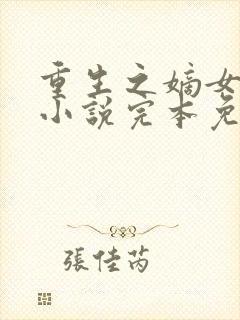 重生之嫡女
小說完本免
張佳芮